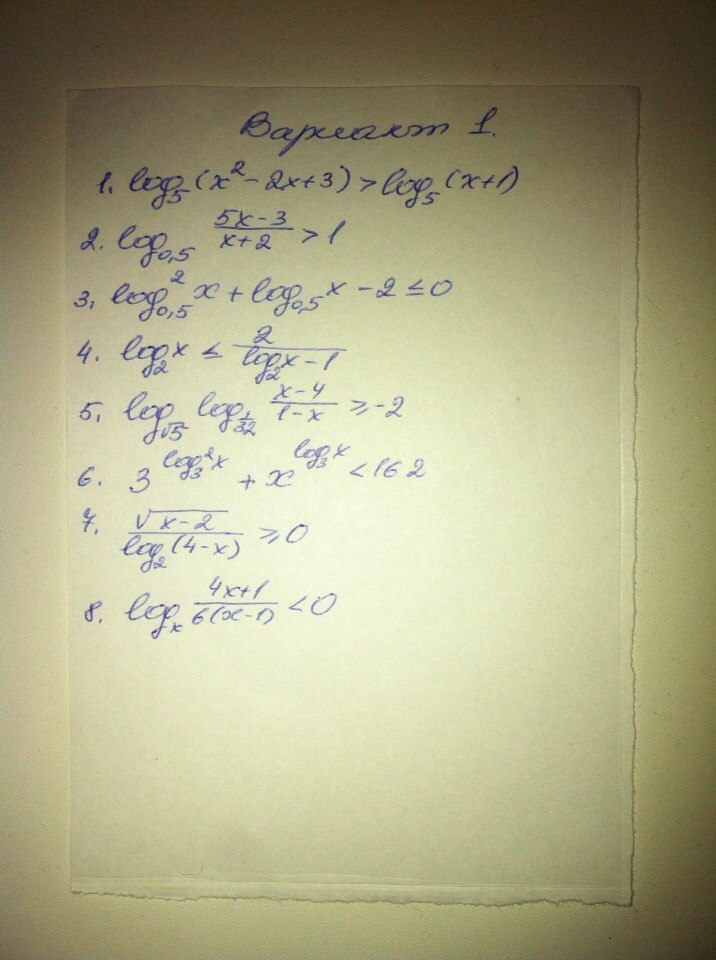 Вариант 1.
1. log₅(x² - 2x + 3) > log₅(x+1)
2. log₀,₅ (5x-3)/(x+2) > 1
3. log²₀,₅ x + log₀,₅ x - 2 ≤ 0
4. log₂x ≤ 2/(log₂x - 1)
5. log_√5 log_1/32 (x-4)/(1-x) ≥ -2
6. 3^(log₃²x) + x^(log₃x) < 162
7. √(x-2)/log₂(4-x) ≥ 0
8. logₓ (4x+1)/(6(x-1)) < 0